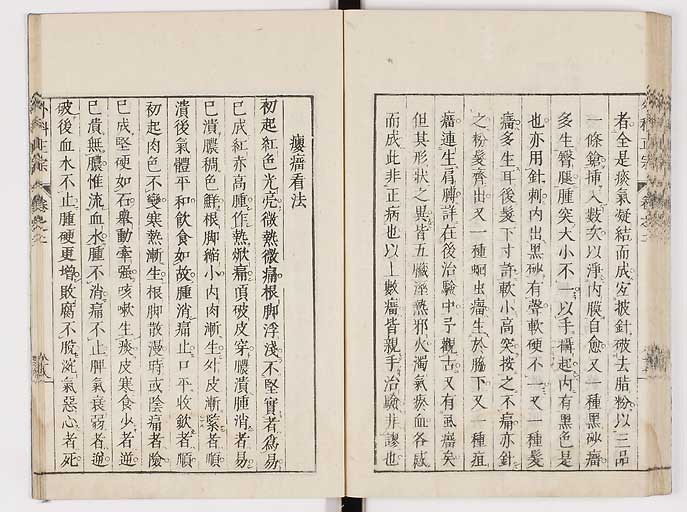 者全是痰氣凝結而成宜披針破去脂粉以三品
一條鎗插入數次以淨內膜自愈又一種黑砂瘤
多生臀腿腫突大小不一以手攝起內有黑色是
也亦用針刺內出黑砂有聲軟硬不一又一種髮
瘤多生耳後髮下寸許軟小高突按之不痛亦針
之粉髮齊出又一種蛔虫瘤生於脇下又一種疽
瘤連生肩膊詳在後治驗中予觀古又有虱瘤矣
但其形狀之異皆五臟溼熱邪火濁氣瘀血各感
而成此非正病也以上數瘤皆親手治驗非謬也
外科正宗
癭瘤看法
初起紅色光亮微熱微痛根脚浮淺不堅實者為易
已成紅赤高腫作熱焮痛頂破皮穿膿潰腫消者易
已潰膿稠色鮮根脚縮小內肉漸生外皮漸緊者順
潰後氣體平和飲食如故腫消痛止口平收歛者順
初起肉色不變寒熱漸生根脚散漫時或陰痛者險
已成堅硬如石舉動牽强咳嗽生痰皮寒食少者逆
已潰無膿惟流血水腫不消痛不止脾氣衰弱者逆
破後血水不止腫硬更增敗腐不脫淀氣惡心者死
外科正宗